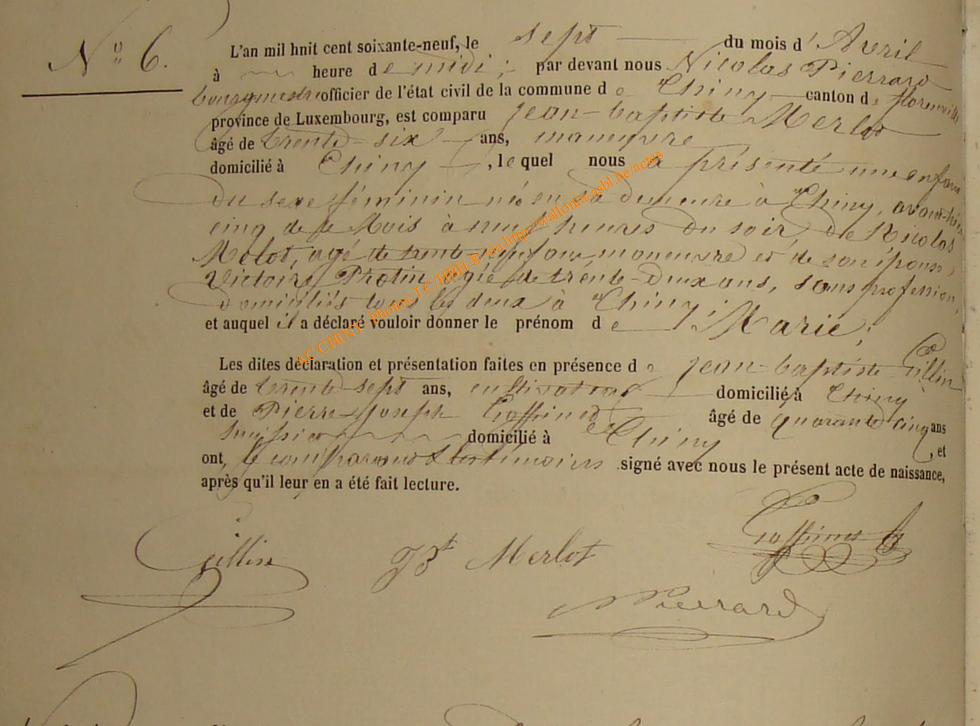 N° 6.
L'an mil huit cent soixante-neuf, le sept du mois d'Avril
à heure de midi; par devant nous Nicolas Pierrard
bourgmestre officier de l'état civil de la commune de Chiny canton de florenville
province de Luxembourg, est comparu Jean-baptiste Merlot
âgé de trente-six ans, maneuvre
domicilié à Chiny, lequel nous a présenté une enfant
du sexe féminin né en sa demeure à Chiny, avant-hier
cinq de ce Mois à heures du soir de Nicolas
Molot, agé de trente maneuvre et de son épouse
Victoire Protin agée de trente-deux ans, sans profession,
domiciliés tous les deux à Chiny;
et auquel il a déclaré vouloir donner le prénom de Marie;
Les dites déclaration et présentation faites en présence de Jean-baptiste Gillin
âgé de trente-sept ans, cultivateur domicilié à Chiny
et de Pierre-Joseph âgé de quarante cinq ans
domicilié à Chiny et
ont, le comparant et les témoins signé avec nous le présent acte de naissance,
après qu'il leur en a été fait lecture.
Gillin JBt Merlot
Pierrard